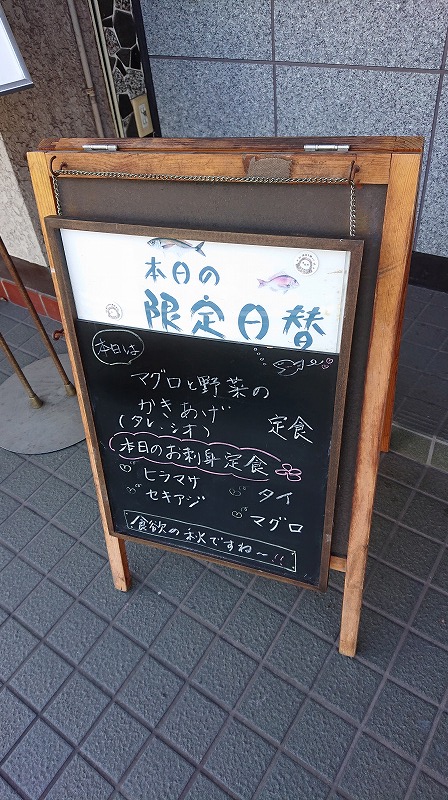 本日の
限定日替
本日は
マグロと野菜の
かきあげ
(タレ・シオ)
定食
本日のお刺身定食
ヒラマサ
タイ
セキアジ
マグロ
食欲の秋ですね〜!!